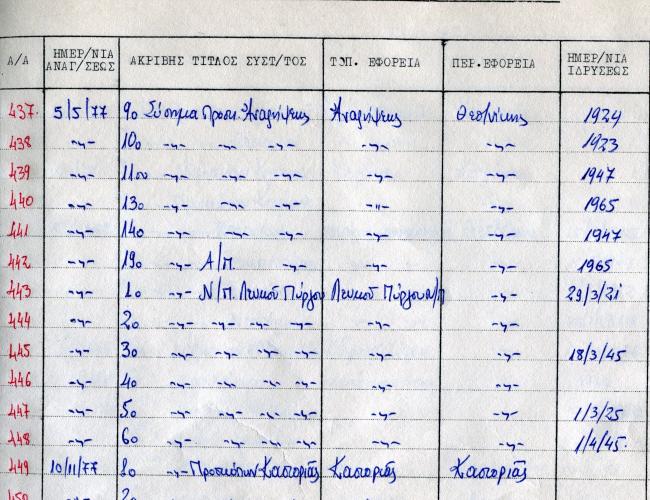 Α/Α ΗΜΕΡ/ΝΙΑ ΑΝΑΓ/ΣΕΩΣ ΑΚΡΙΒΗΣ ΤΙΤΛΟΣ ΣΥΣΤ/ΤΟΣ ΤΟΠ. ΕΦΟΡΕΙΑ ΠΕΡ.ΕΦΟΡΕΙΑ ΗΜΕΡ/ΝΙΑ ΙΔΡΥΣΕΩΣ
437 5/5/77 9ο Σύστημα Προσκ. Αναλήψεως Αναλήψεως Θεσ/νίκης 1924
438 -〃- 10ο -〃- -〃- -〃- -〃- -〃- 1923
439 -〃- 11ον -〃- -〃- -〃- -〃- -〃- 1947
440 -〃- 13ο -〃- -〃- -〃- -〃- -〃- 1965
441 -〃- 14ο -〃- -〃- -〃- -〃- -〃- 1947
442 -〃- 19ο -〃- Α/Π. -〃- -〃- -〃- 1965
443 -〃- 1ο -〃- Ν/Π. Λευκού Πύργου Λευκού Πύργου Ν/Π -〃- 29/3/21
444 -〃- 2ο -〃- -〃- -〃- -〃- -〃- -〃-
445 -〃- 3ο -〃- -〃- -〃- -〃- -〃- -〃- 18/3/45
446 -〃- 4ο -〃- -〃- -〃- -〃- -〃- -〃-
447 -〃- 5ο -〃- -〃- -〃- -〃- -〃- -〃- 1/3/25
448 -〃- 6ο -〃- -〃- -〃- -〃- -〃- -〃- 1/4/45.
449 10/11/77 1ο -〃- Προσκόπων Καστοριάς Καστοριάς Καστοριάς
450 -〃- 2ο